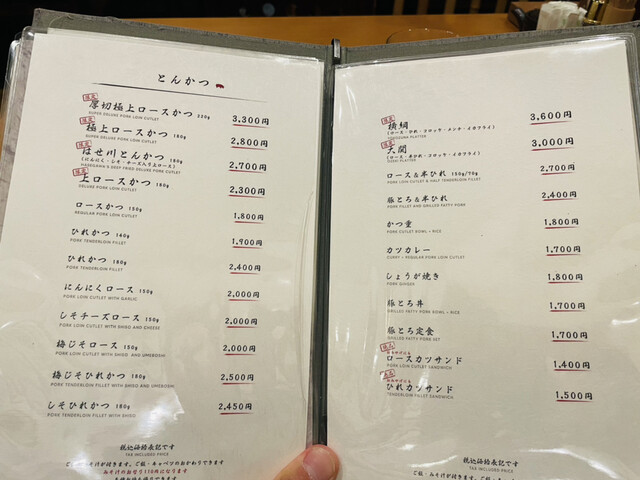 とんかつ
限定
厚切極上ロースかつ 220g 3,300円
SUPER DELUXE PORK LOIN CUTLET
限定
極上ロースかつ 180g 2,800円
SUPER DELUXE PORK LOIN CUTLET
限定
はせ川とんかつ 180g 2,700円
(にんにく・しそ・チーズ入り上ロース)
HASEGAWA'S DEEP FRIED DELUXE PORK CUTLET
限定
上ロースかつ 180g 2,300円
DELUXE PORK LOIN CUTLET
ロースかつ 150g 1,800円
REGULAR PORK LOIN CUTLET
ひれかつ 140g 1,700円
PORK TENDERLOIN FILLET
ひれかつ 180g 2,400円
PORK TENDERLOIN FILLET
にんにくロース 150g 2,000円
PORK LOIN CUTLET WITH GARLIC
しそチーズロース 150g 2,000円
PORK LOIN CUTLET WITH SHISO AND CHEESE
梅じそロース 150g 2,000円
PORK LOIN CUTLET WITH SHISO AND UMEBOSHI
梅じそひれかつ 180g 2,500円
PORK TENDERLOIN FILLET WITH SHISO AND UMEBOSHI
しそひれかつ 180g 2,450円
PORK TENDERLOIN FILLET WITH SHISO
税込価格表記です
TAX INCLUDED PRICE
ご飯・みそ汁が付きます。ご飯・キャベツのおかわりできます
みそ汁のお替り110円になります
限定
横綱 3,600円
(ロース・ひれ・コロッケ・メンチ・イカフライ)
YOKOZUNA PLATTER
限定
大関 3,000円
(ロース・ひれ・コロッケ・イカフライ)
OZEKI PLATTER
ロース&半ひれ 150g/70g 2,700円
PORK LOIN CUTLET & HALF TENDERLOIN FILLET
豚とろ&半ひれ 2,400円
PORK FILLET AND GRILLED FATTY PORK
かつ重 1,800円
PORK CUTLET BOWL + RICE
カツカレー 1,700円
CURRY + REGULAR PORK LOIN CUTLET
しょうが焼き 1,800円
PORK GINGER
豚とろ丼 1,700円
GRILLED FATTY PORK BOWL + RICE
豚とろ定食 1,700円
GRILLED FATTY PORK SET
限定
ロースカツサンド 1,400円
PORK LOIN CUTLET SANDWICH
限定
ひれカツサンド 1,500円
PORK TENDERLOIN FILLET SANDWICH
税込価格表記です
TAX INCLUDED PRICE